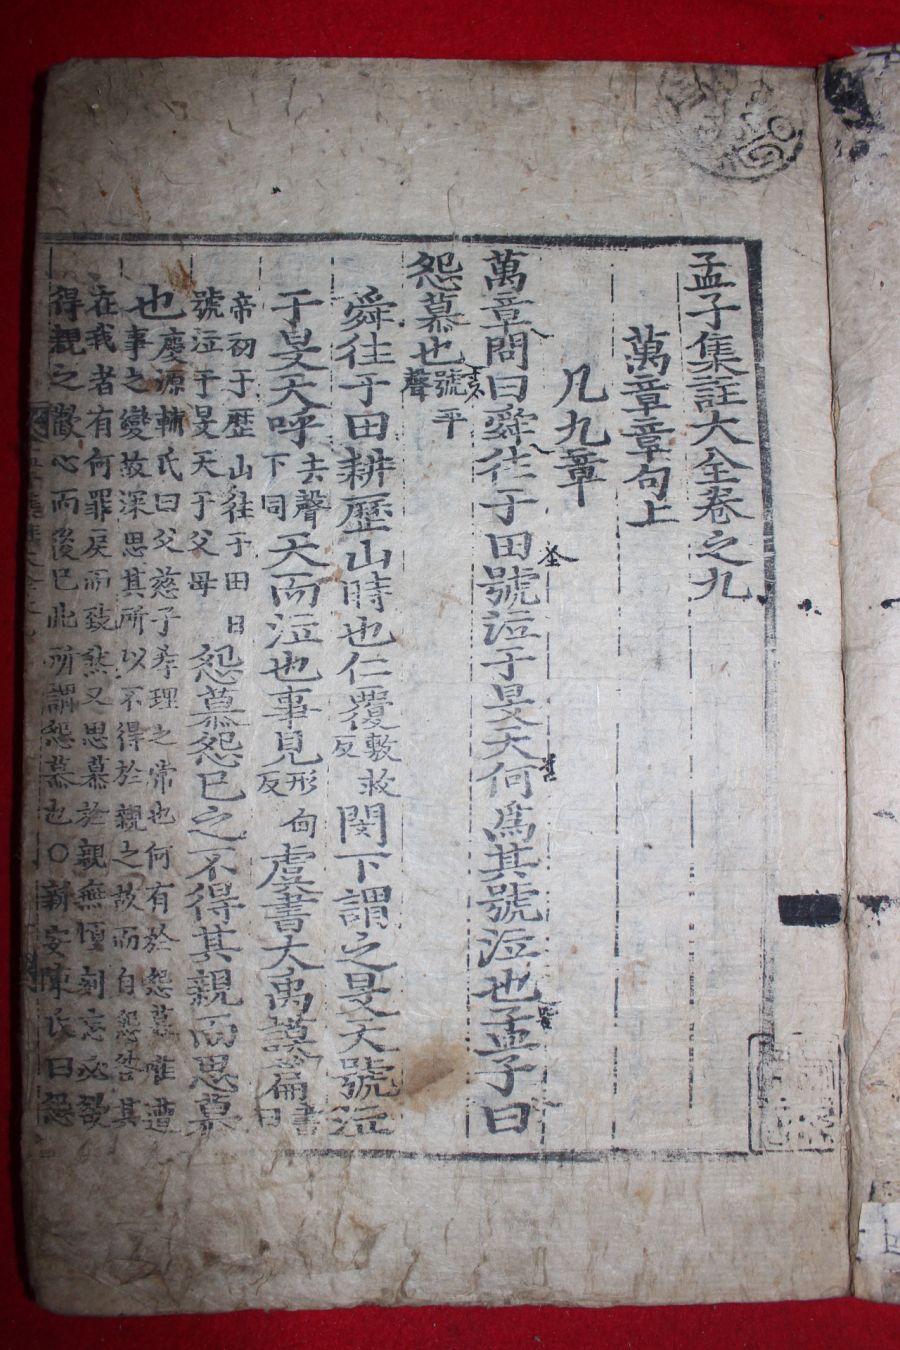 孟子集註大全卷之九
萬章章句上
凡九章
萬章問曰舜往于田號泣于旻天何爲其號泣也孟子曰
怨慕也號平聲
舜往于田耕歷山時也仁覆敷救反閔下謂之旻天號泣
于旻天呼去聲下同天而泣也事見形甸反虞書大禹謨篇書曰
帝初于歷山往于田日號泣于旻天于父母怨慕怨己之不得其親而思慕
也慶源輔氏曰父慈子孝理之常也何有於怨慕唯遭事之變故深思其所以不得於親之故而自怨咎其
在我者有何罪戾而致然又思慕於親無恒刻忘必欲得親之懽心而後已此所謂怨慕也○新安陳氏曰怨